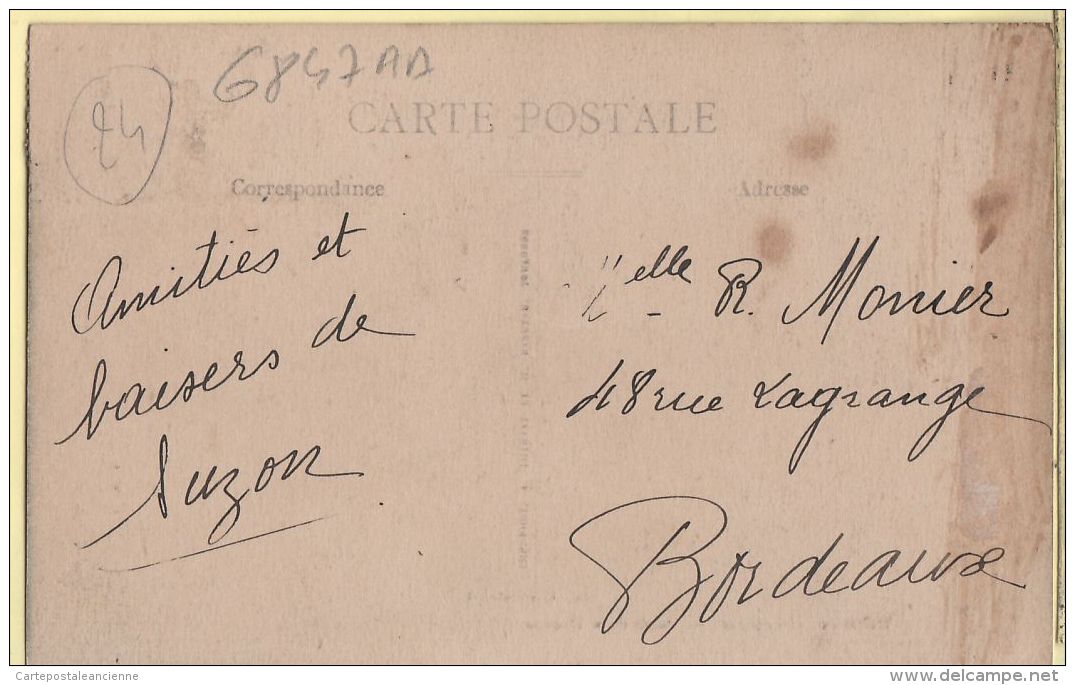 6847AA
24
CARTE POSTALE
Correspondance
Adresse
Amitiés et
baisers de
Suzon
Melle R. Monier
48 rue Lagrange
Bordeaux
Cartepostaleancienne
delcampe.net